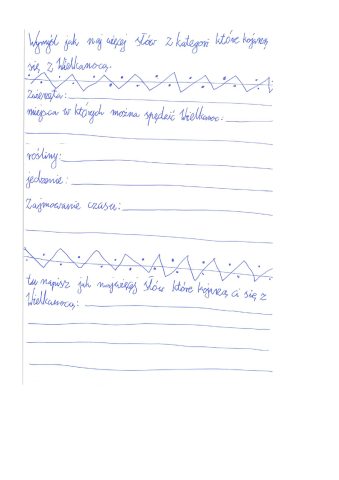 Wymyśl jak naj więcej słów z kategori które kojarzą
się z Wielkanocą.
Zwierzęta:
miejsca w których można spędzić Wielkanoc:
rośliny:
jedzenie:
Zajmowanie czasu:
tu napisz jak najwięcej słów które kojarzą ci się z
Wielkanocą: